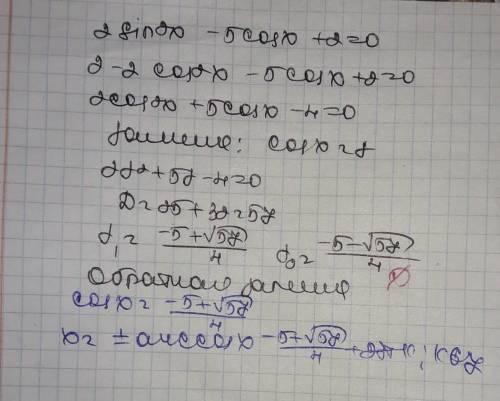 2 sin2x - 5cosx + 2 = 0
2 - 2 cos2x - 5cosx + 2 = 0
2cos2x + 5cosx - 4 = 0
Замена: cosx = y
2y2 + 5y - 4 = 0
D = 25 + 32 = 57
y1 = (-5 + √57)/4 y2 = (-5 - √57)/4
Обратная замена
cosx = (-5 + √57)/4
x = ± arccosx (-5 + √57)/4 + 2πк; к∈Z